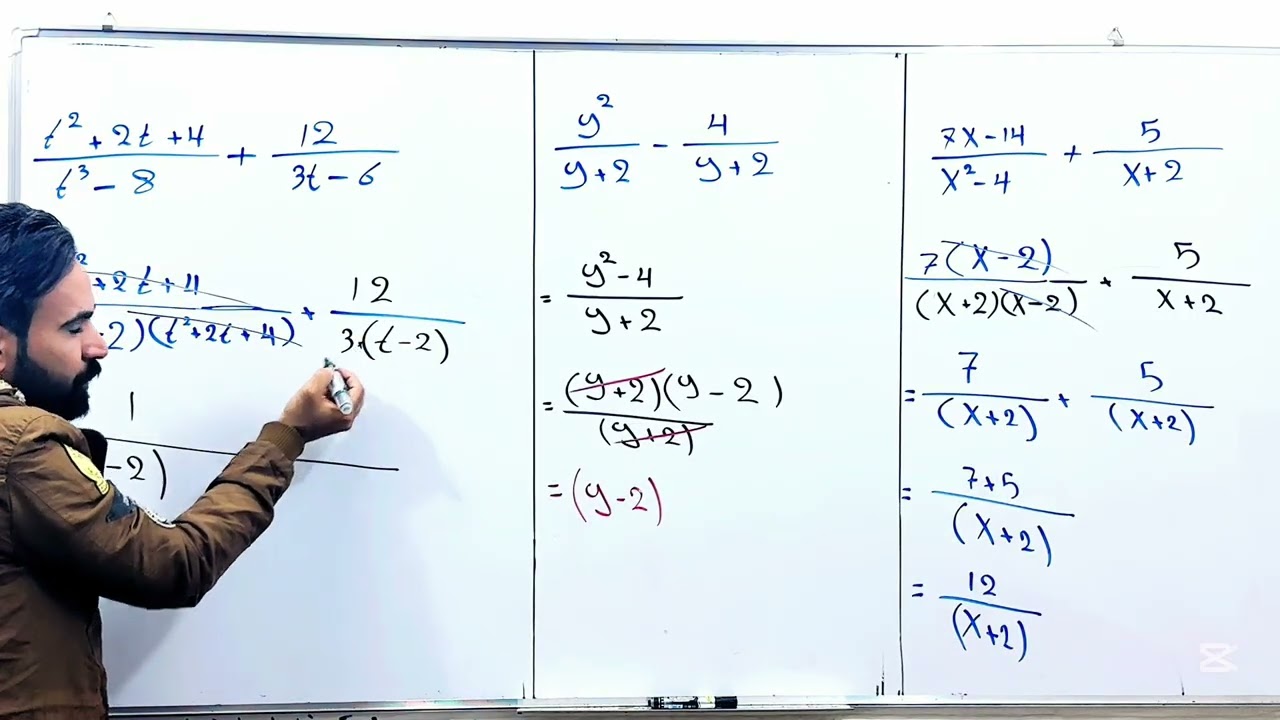 t² + 2t + 4 / t³ - 8 + 12 / 3t - 6
² + 2t + 4 / 2)(t² + 2t + 4) + 12 / 3·(t - 2)
1 / - 2)
y² / y + 2 - 4 / y + 2
= y² - 4 / y + 2
= (y + 2)(y - 2) / (y + 2)
= (y - 2)
7x - 14 / x² - 4 + 5 / x + 2
7(x - 2) / (x + 2)(x - 2) + 5 / x + 2
= 7 / (x + 2) + 5 / (x + 2)
= 7 + 5 / (x + 2)
= 12 / (x + 2)